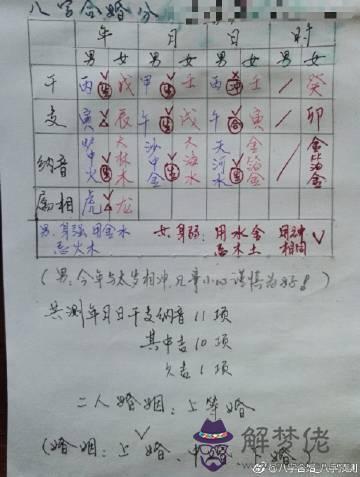 八字合婚分
年 月 日 时
男 女 男 女 男 女 男 女
干 丙 戊 甲 壬 丙 壬 / 癸
支 寅 辰 午 戌 午 寅 / 卯
纳音 炉中火 大林木 沙中金 大海水 天河水 金箔金 / 金箔金
属相 虎 龙
男:身强 用金水 女:身弱:用水金 用神
忌火木 忌木土 相同
(男:今年与太岁相冲,凡事小心谨慎为好!)
共测年月日干支纳音11项
其中吉10项
欠吉1项
二人婚姻:上等婚
(婚姻:上 中 上婚)
解梦佬
@八字合婚_八字预测